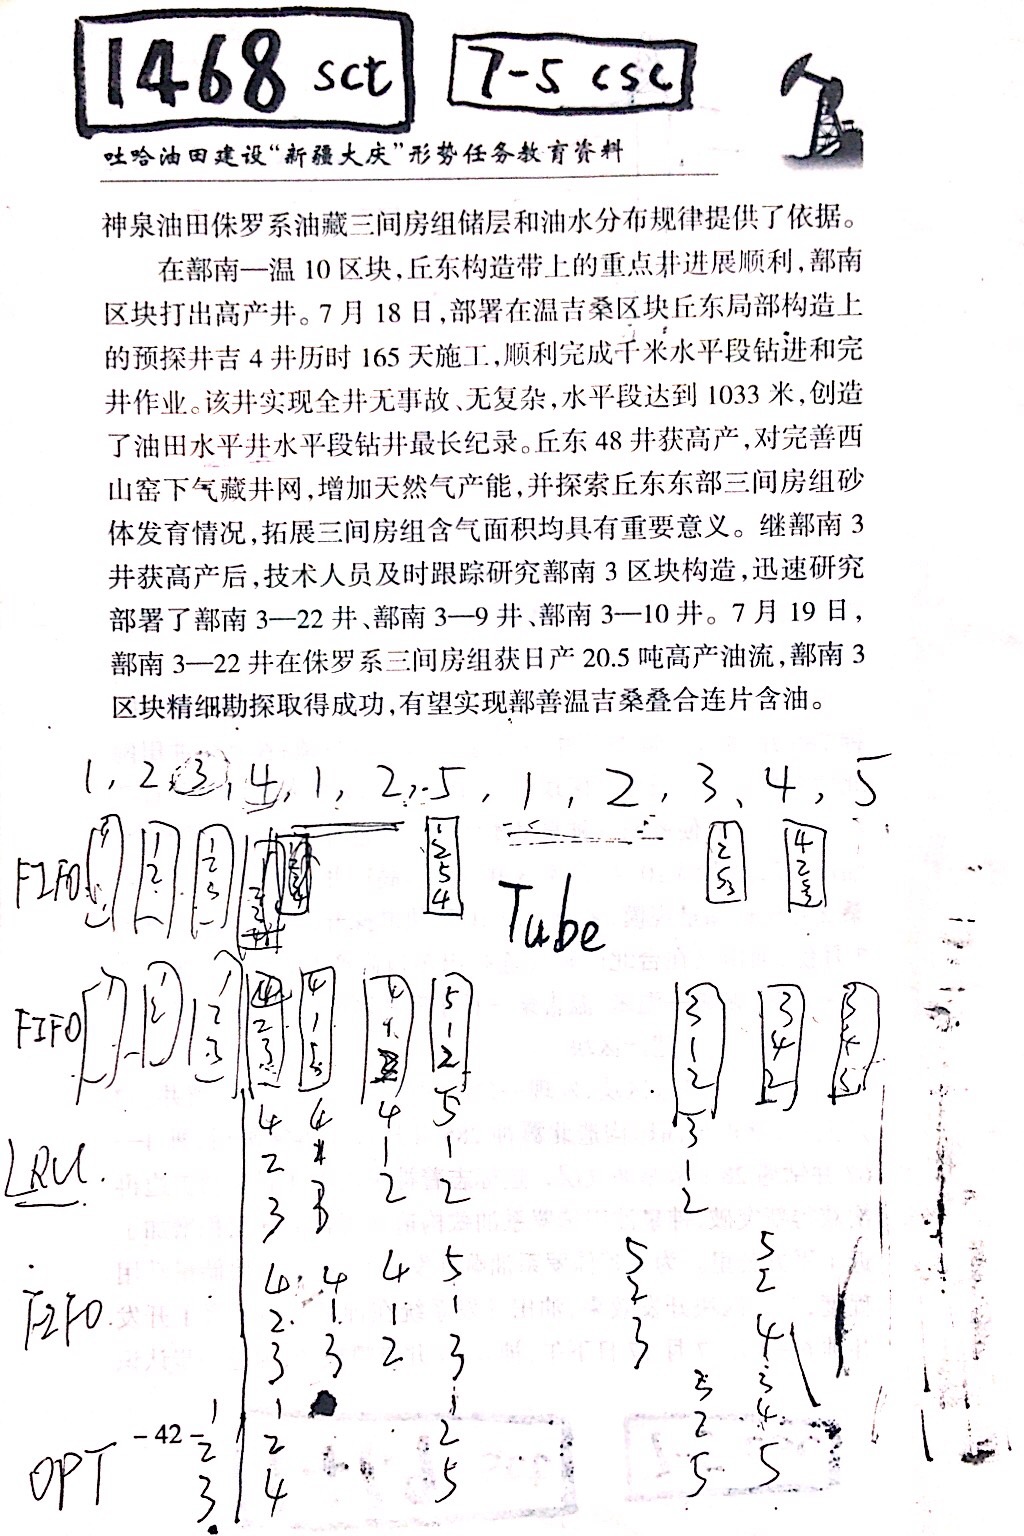 1468 sct 7-5 csc
吐哈油田建设“新疆大庆”形势任务教育资料
神泉油田侏罗系油藏三间房组储层和油水分布规律提供了依据。
在鄯南—温 10 区块，丘东构造带上的重点井进展顺利，鄯南
区块打出高产井。7 月 18 日，部署在温吉桑区块丘东局部构造上
的预探井吉 4 井历时 165 天施工，顺利完成千米水平段钻进和完
井作业。该井实现全井无事故、无复杂，水平段达到 1033 米，创造
了油田水平井水平段钻井最长纪录。丘东 48 井获高产，对完善西
山窑下气藏井网，增加天然气产能，并探索丘东东部三间房组砂
体发育情况，拓展三间房组含气面积均具有重要意义。继鄯南 3
井获高产后，技术人员及时跟踪研究鄯南 3 区块构造，迅速研究
部署了鄯南 3—22 井、鄯南 3—9 井、鄯南 3—10 井。7 月 19 日，
鄯南 3—22 井在侏罗系三间房组获日产 20.5 吨高产油流，鄯南 3
区块精细勘探取得成功，有望实现鄯善温吉桑叠合连片含油。
1, 2, 3, 4, 1, 2, 5, 1, 2, 3, 4, 5
FIFO
Tube
FIFO
4 4 4 5 3
LRU.
2 1 1 1
3 2 2 2
4 4 4 5 5 5
FIFO
2 1 1 1 2 2
3 3 2 3 3 4
1 1 1 3
- 42 -
2 2 2 2 4
OPT
3 4 5 5 5